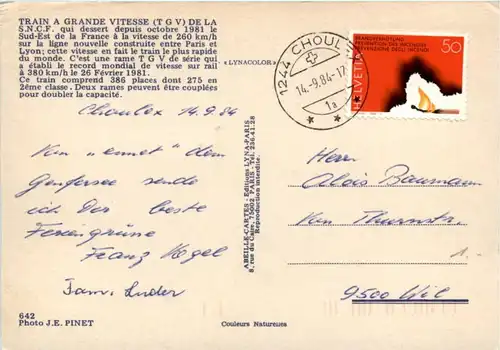 TRAIN A GRANDE VITESSE (T G V) DE LA
S.N.C.F. qui dessert depuis octobre 1981 le
Sud-Est de la France à la vitesse de 260 km/h
sur la ligne nouvelle construite entre Paris et
Lyon; cette vitesse en fait le train le plus rapide
du monde. C'est une rame T G V de série qui
a établi le record mondial de vitesse sur rail
à 380 km/h le 26 Février 1981.
Ce train comprend 386 places dont 275 en
2ème classe. Deux rames peuvent être couplées
pour doubler la capacité.
«LYNACOLOR»
1244 CHOULEX
14.-9.84-17
1a
BRANDVERHÜTUNG
PRÉVENTION DES INCENDIES
PREVENZIONE DEGLI INCENDI
50
HELVETIA
Choulex 14.9.84
Von "ennet" dem
Genfersee sende
ich Dir beste
Feriengrüsse
Franz Vogel
Fam.
ABEILLE-CARTES - Editions LYNA-PARIS
8, rue du Caire, 75002 PARIS - Tél. 236.41.28
Reproduction interdite.
Herrn
Alois Baumann
Von Thurnstr.
1.-
9500 Wil
642
Photo J.E. PINET
Couleurs Naturelles